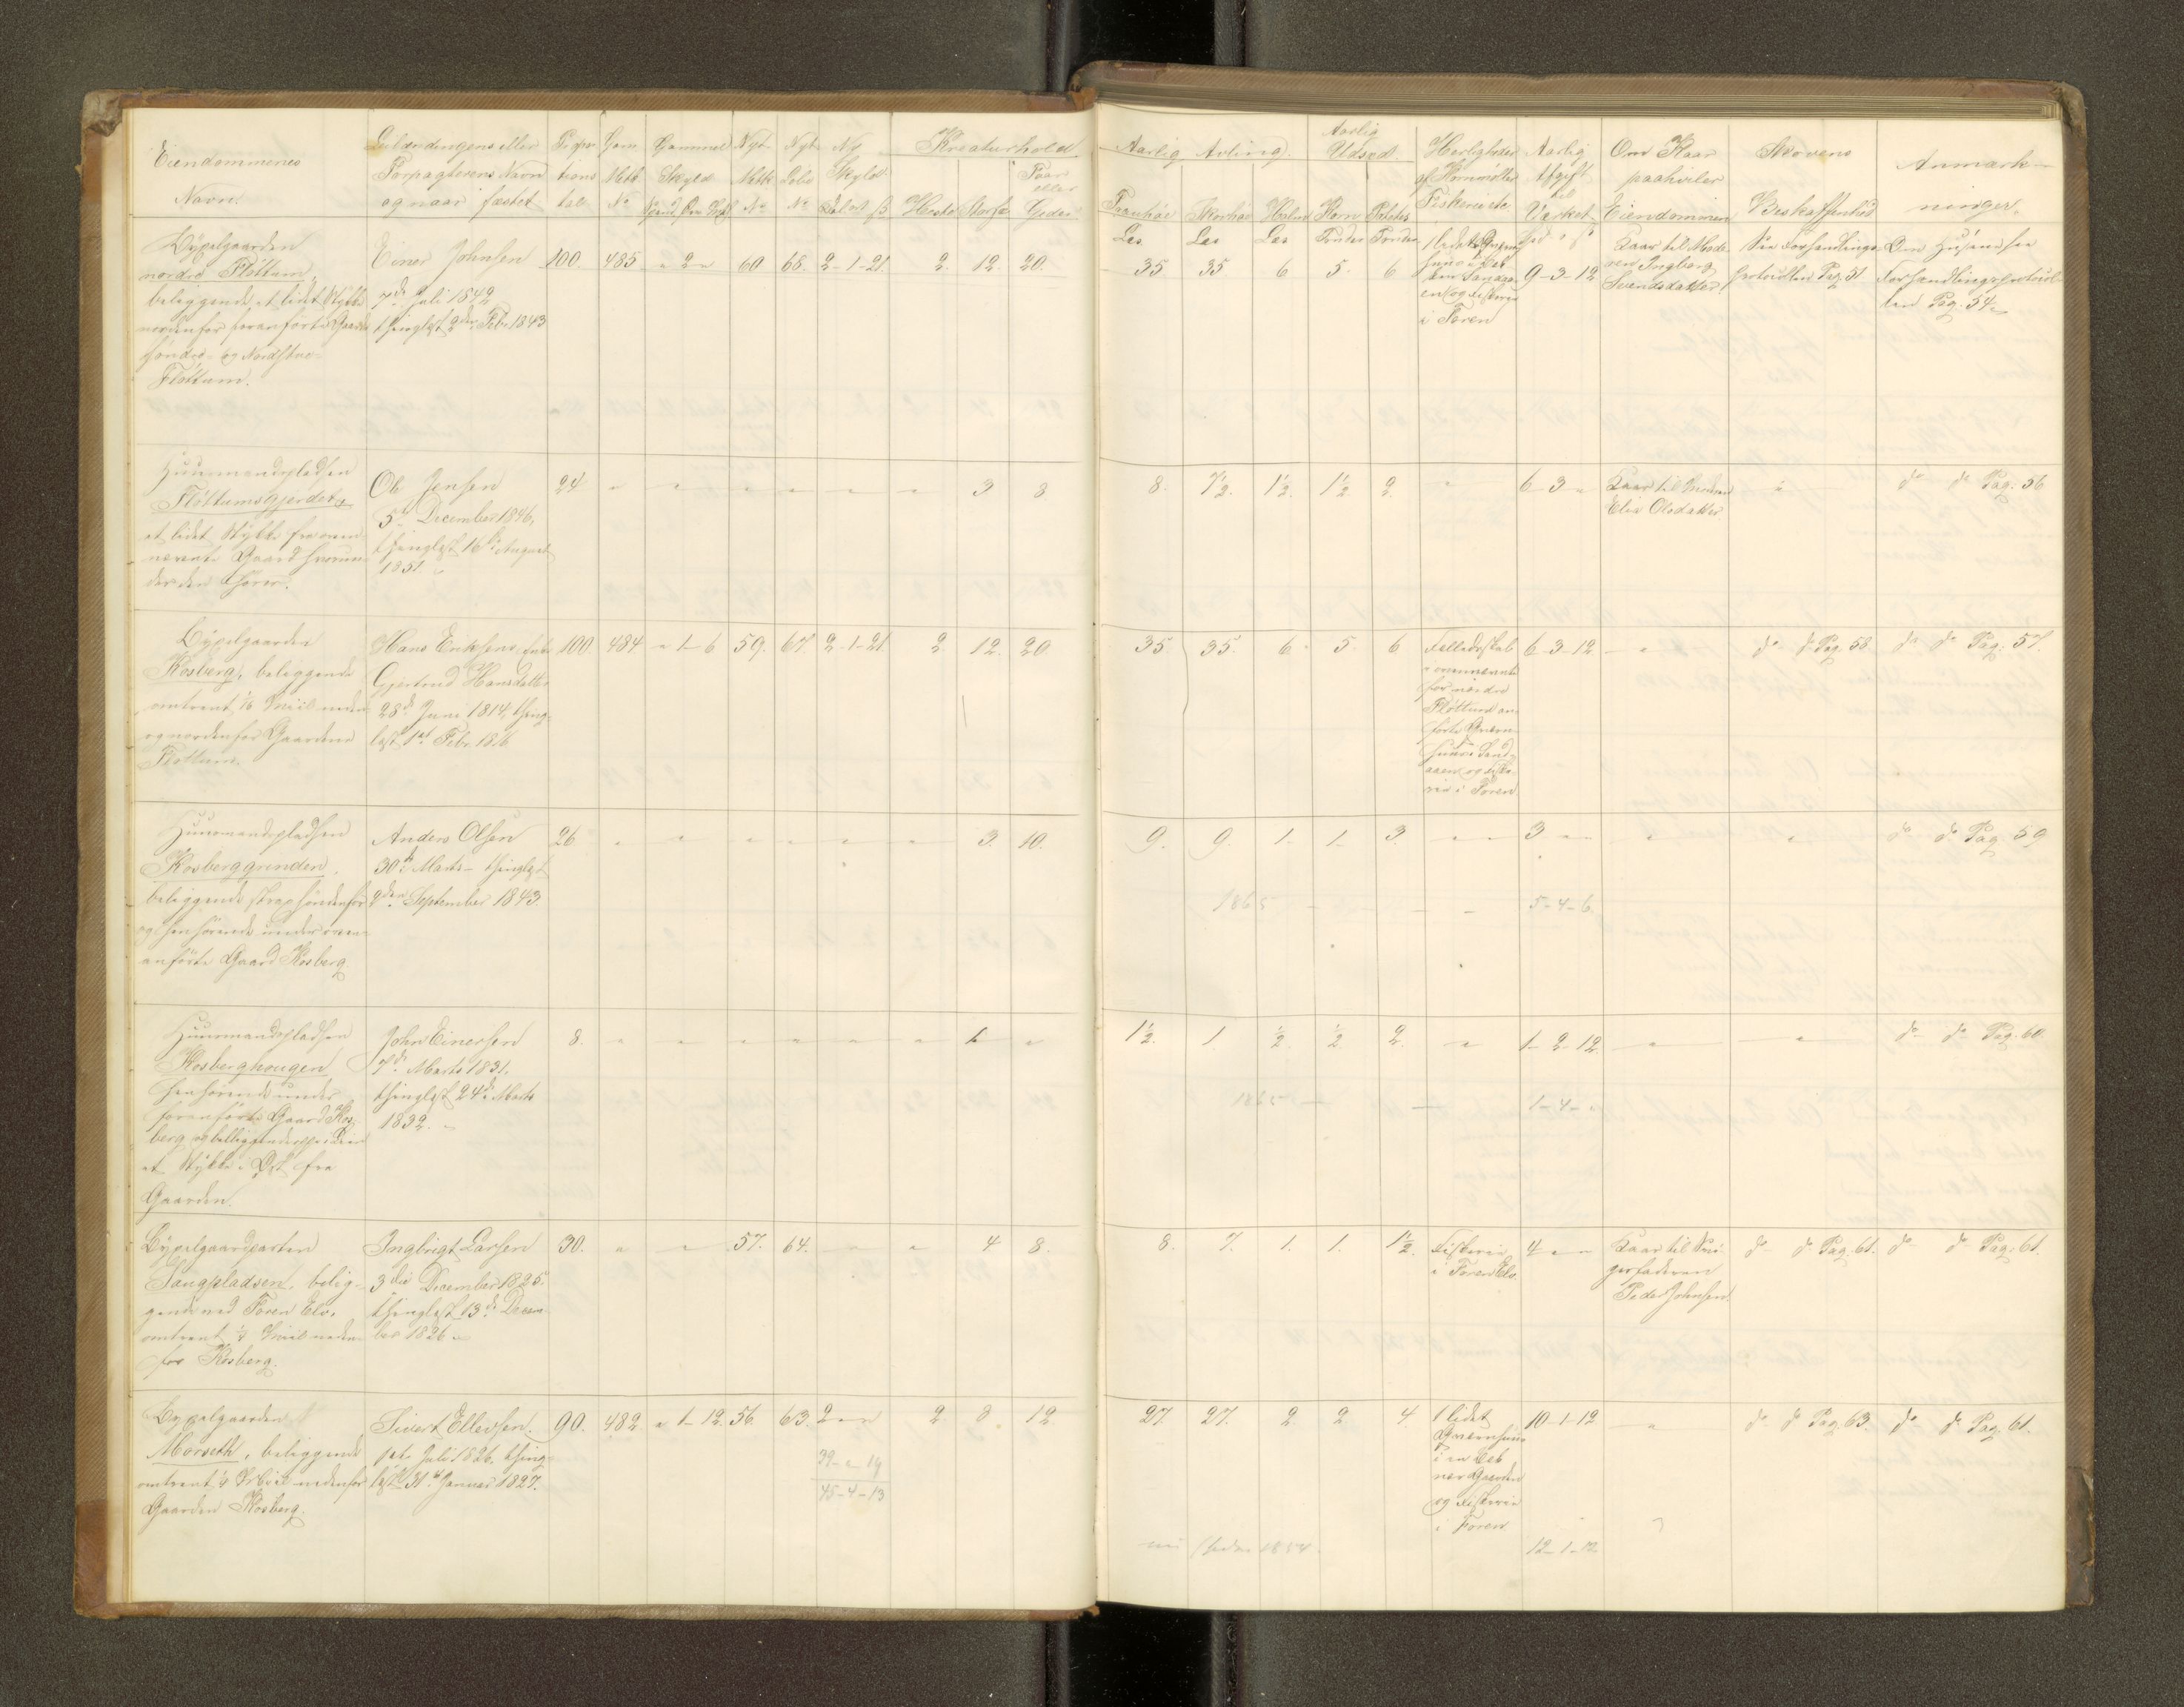 Eiendommenes
Navn.
Leilændingens eller
Forpagterens Navn
og naar fæstet
Propor
tions
tal
Gam.
Matr.
No
Gammel
Skyld
Spand Øre Mkl
Nyt
Matr.
No
Nyt
Løbe
No
Ny
Skyld
Daler Ort ß
Kreaturhold
Heste
Storfæ
Faar
eller
Geder
Aarlig Avling.
Frønhøe
Les
Skovhøe
Les
Halm
Les
Korn
Tønder
Potetes
Tønder
Aarlig
Udsæd.
Herligheder
af Kornmøller
Fiskerie etc
Aarlig
Afgift
til
Værket
Om Kaar
paahviler
Eiendommen
Skovens
Beskaffenhed
Anmærk-
ninger.
Bygselgaarden
nordre Fløttum,
beliggende et lidet Stykke
nordenfor foranførte Gaarde
søndre- og Nordstue
Fløttum.
Einer Johnsen
7de Juli 1842
thinglæst 2den Febr. 1843
100. 485 " 2 " 60 68. 2-1-21. 2. 12. 20.
35 35 6 5. 6
1 lidet Qværn-
huus
i Foren
9-3-12
Kaar til Mode-
ren Ingborg
Svendsdatter.
See Forhandlings-
protocollen Pag. 31
Om Husene see
Forhandlingsprotocol-
len Pag. 54
Huusmandspladsen
Fløttumsgjerdet,
et lidet Stykke fra oven-
nævnte Gaard hvorun-
der den hører.
Ole Jensen
5te December 1846,
thinglæst 16de August
1851.
24 " " " " " " 3 8
8. 7½. 1½. 1½ 2. " 6 3 "
Kaar til Moderen
Elie Olsdatter.
"
do do Pag. 56
Bygselgaarden
Kosberg, beliggende
omtrent ⅛ Miil neden
og nordenfor Gaardene
Fløttum.
Hans Eriksens Enke
Gjertrud Hansdatter
28de Juni 1814, thing-
læst 1ste Febr. 1816
100. 484 " 1-6 59. 67. 2-1-21. 2. 12. 20.
35 35. 6. 5. 6
Fælledsskab
i ovennævnte
for nordre
Fløttum an-
førte Qværn-
huus i Sand-
aaen og Fiske-
rie i Foren
6-3-12
"
do do Pag. 58
do do Pag. 57.
Huusmandspladsen
Kosberggrinden,
beliggende strax søndenfor
og henhørende under oven-
anførte Gaard Kosberg
Anders Olsen
30te Marts - thinglæst
2den September 1843.
26 " " " " " " 3. 10.
9. 9. 1. 1. 3. " 3 " " " "
do do Pag 59
1865 - - - 5-4-6.
Huusmandspladsen
Kosberghougen
henhørende under
foranførte Gaard Kos-
berg og beliggende
et Stykke i Øst fra
Gaarden.
John Einersen
7de Marts 1831.
thinglæst 24de Marts
1832.
8. " " " " " " 1 "
1½. 1. ½ ½ 2. " 1-2-12 " "
do do Pag. 60.
1865 - - 1-4-"
Bygselgaardparten
Saugpladsen, belig-
gende ved Foren Elv,
omtrent ⅛ Miil neden-
for Kosberg.
Ingbrigt Larsen
3die December 1825.
thinglæst 13de Decem-
ber 1826
30. " " 57. 64. " " 4 8.
8. 7. 1. 1. 1½.
Fiskerie
i Foren Elv.
4 " "
Kaar til Svi-
gerfaderen
Peder Johnsen.
do do Pag. 61.
do do Pag. 61.
Bygselgaarden
Morseth, beliggende
omtrent ¼ Miil nedenfor
Gaarden Kosberg.
Sivert Ellevsen
1ste Juli 1826. thing-
læst 31te Januar 1827.
90. 482 " 1-12. 56. 63. 2 " " 2. 8. 12
39-"-19
45-4-13
27. 27. 2. 2. 4.
1 lidet
Qværnhuus
i en Bæk
nær Gaarden
og Fiskerie
i Foren
10-1-12
"
do do Pag. 63.
do do Pag. 61.
siden 1854.
12-1-12